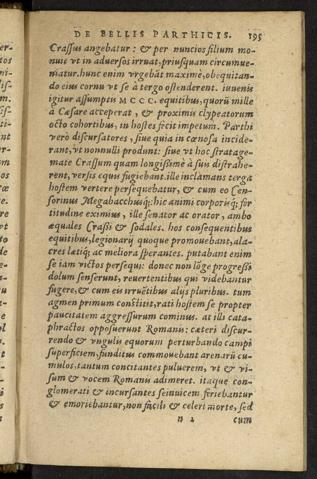 DE BELLIS PARTHICIS. 195
Crassus angebatur: & per nuncios filium mo-
nuit vt in aduersos irruat, priusquam circumue-
niatur. hunc enim vrgebāt maximè, obequitan-
do eius cornu vt se à tergo ostenderent. iuuenis
igitur assumptis MCCC. equitibus, quorū mille
à Cæsare acceperat, & proximis clypeatorum
octo cohortibus, in hostes fecit impetum. Parthi
verò discursatores, siue quia in cœnosa incide-
rant, vt nonnulli produnt: siue vt hoc stratage-
mate Crassum quam longissimè à suis distrahe-
rent, versis equis fugiebant. ille inclamans terga
hostem vertere persequebatur, & cum eo Cen-
sorinus Megabacchusq́;: hic animi corporisq́; for
titudine eximius, ille senator ac orator, ambo
æquales Crassi & sodales. hos consequentibus
equitibus, legionarij quoque promouebant, ala-
cres lætiq́; ac meliora sperantes. putabant enim
se iam victos persequi: donec non lōge progressi
dolum senserunt, reuertentibus qui videbantur
fugere, & cum eis irruētibus alijs pluribus. tum
agmen primum constitit, rati hostem se propter
paucitatem aggressurum cominus. at illi cata-
phractos opposuerunt Romanis: cæteri discur-
rendo & vngulis equorum perturbando campi
superficiem, funditus commouebant arenarū cu-
mulos, tantum concitantes puluerem, vt & vi-
sum & vocem Romanis adimeret. itaque con-
glomerati & incursantes seinuicem feriebantur
& emoriebantur, non facili & celeri morte, sed
n 2 cum